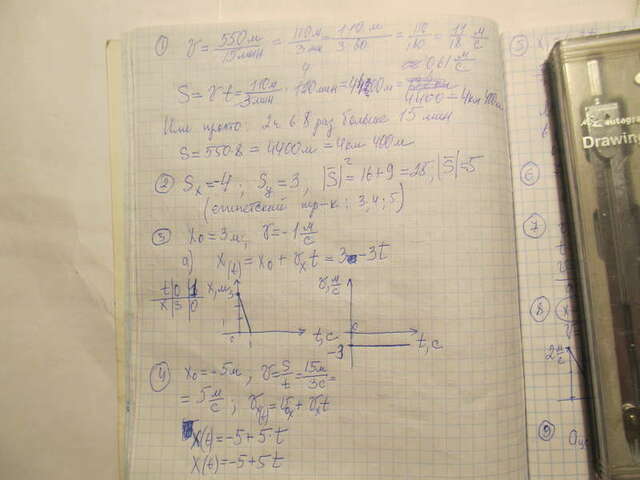 ① v = 550 м / 15 мин = 110 м / 3 мин = 110 м / 3·60 = 110 / 180 = 11 / 18 м/с
≈ 0,61 м/с
S = vt = 110 м / 3 мин · 120 мин = 4400 м =
4400 = 4 км 400 м
Или просто: 2ч в 8 раз больше 15 мин
S = 550·8 = 4400 м = 4 км 400 м
② Sx = -4; Sy = 3, |S|² = 16+9 = 25, |S| = 5
(египетский тр-к; 3; 4; 5)
③ x0 = 3 м; v = -1 м/с
а) x(t) = x0 + vx t = 3 - 3t
t 0 1
x 3 0
x, м
3
0 1 t, с
v, м/с
0
-3
t, с
④ x0 = -5 м, v = S/t = 15 м / 3 с =
= 5 м/с;
x(t) = -5 + 5·t
x(t) = -5 + 5t
⑤ x
⑥
⑦
⑧
2 м/с
⑨
autograph
Drawing